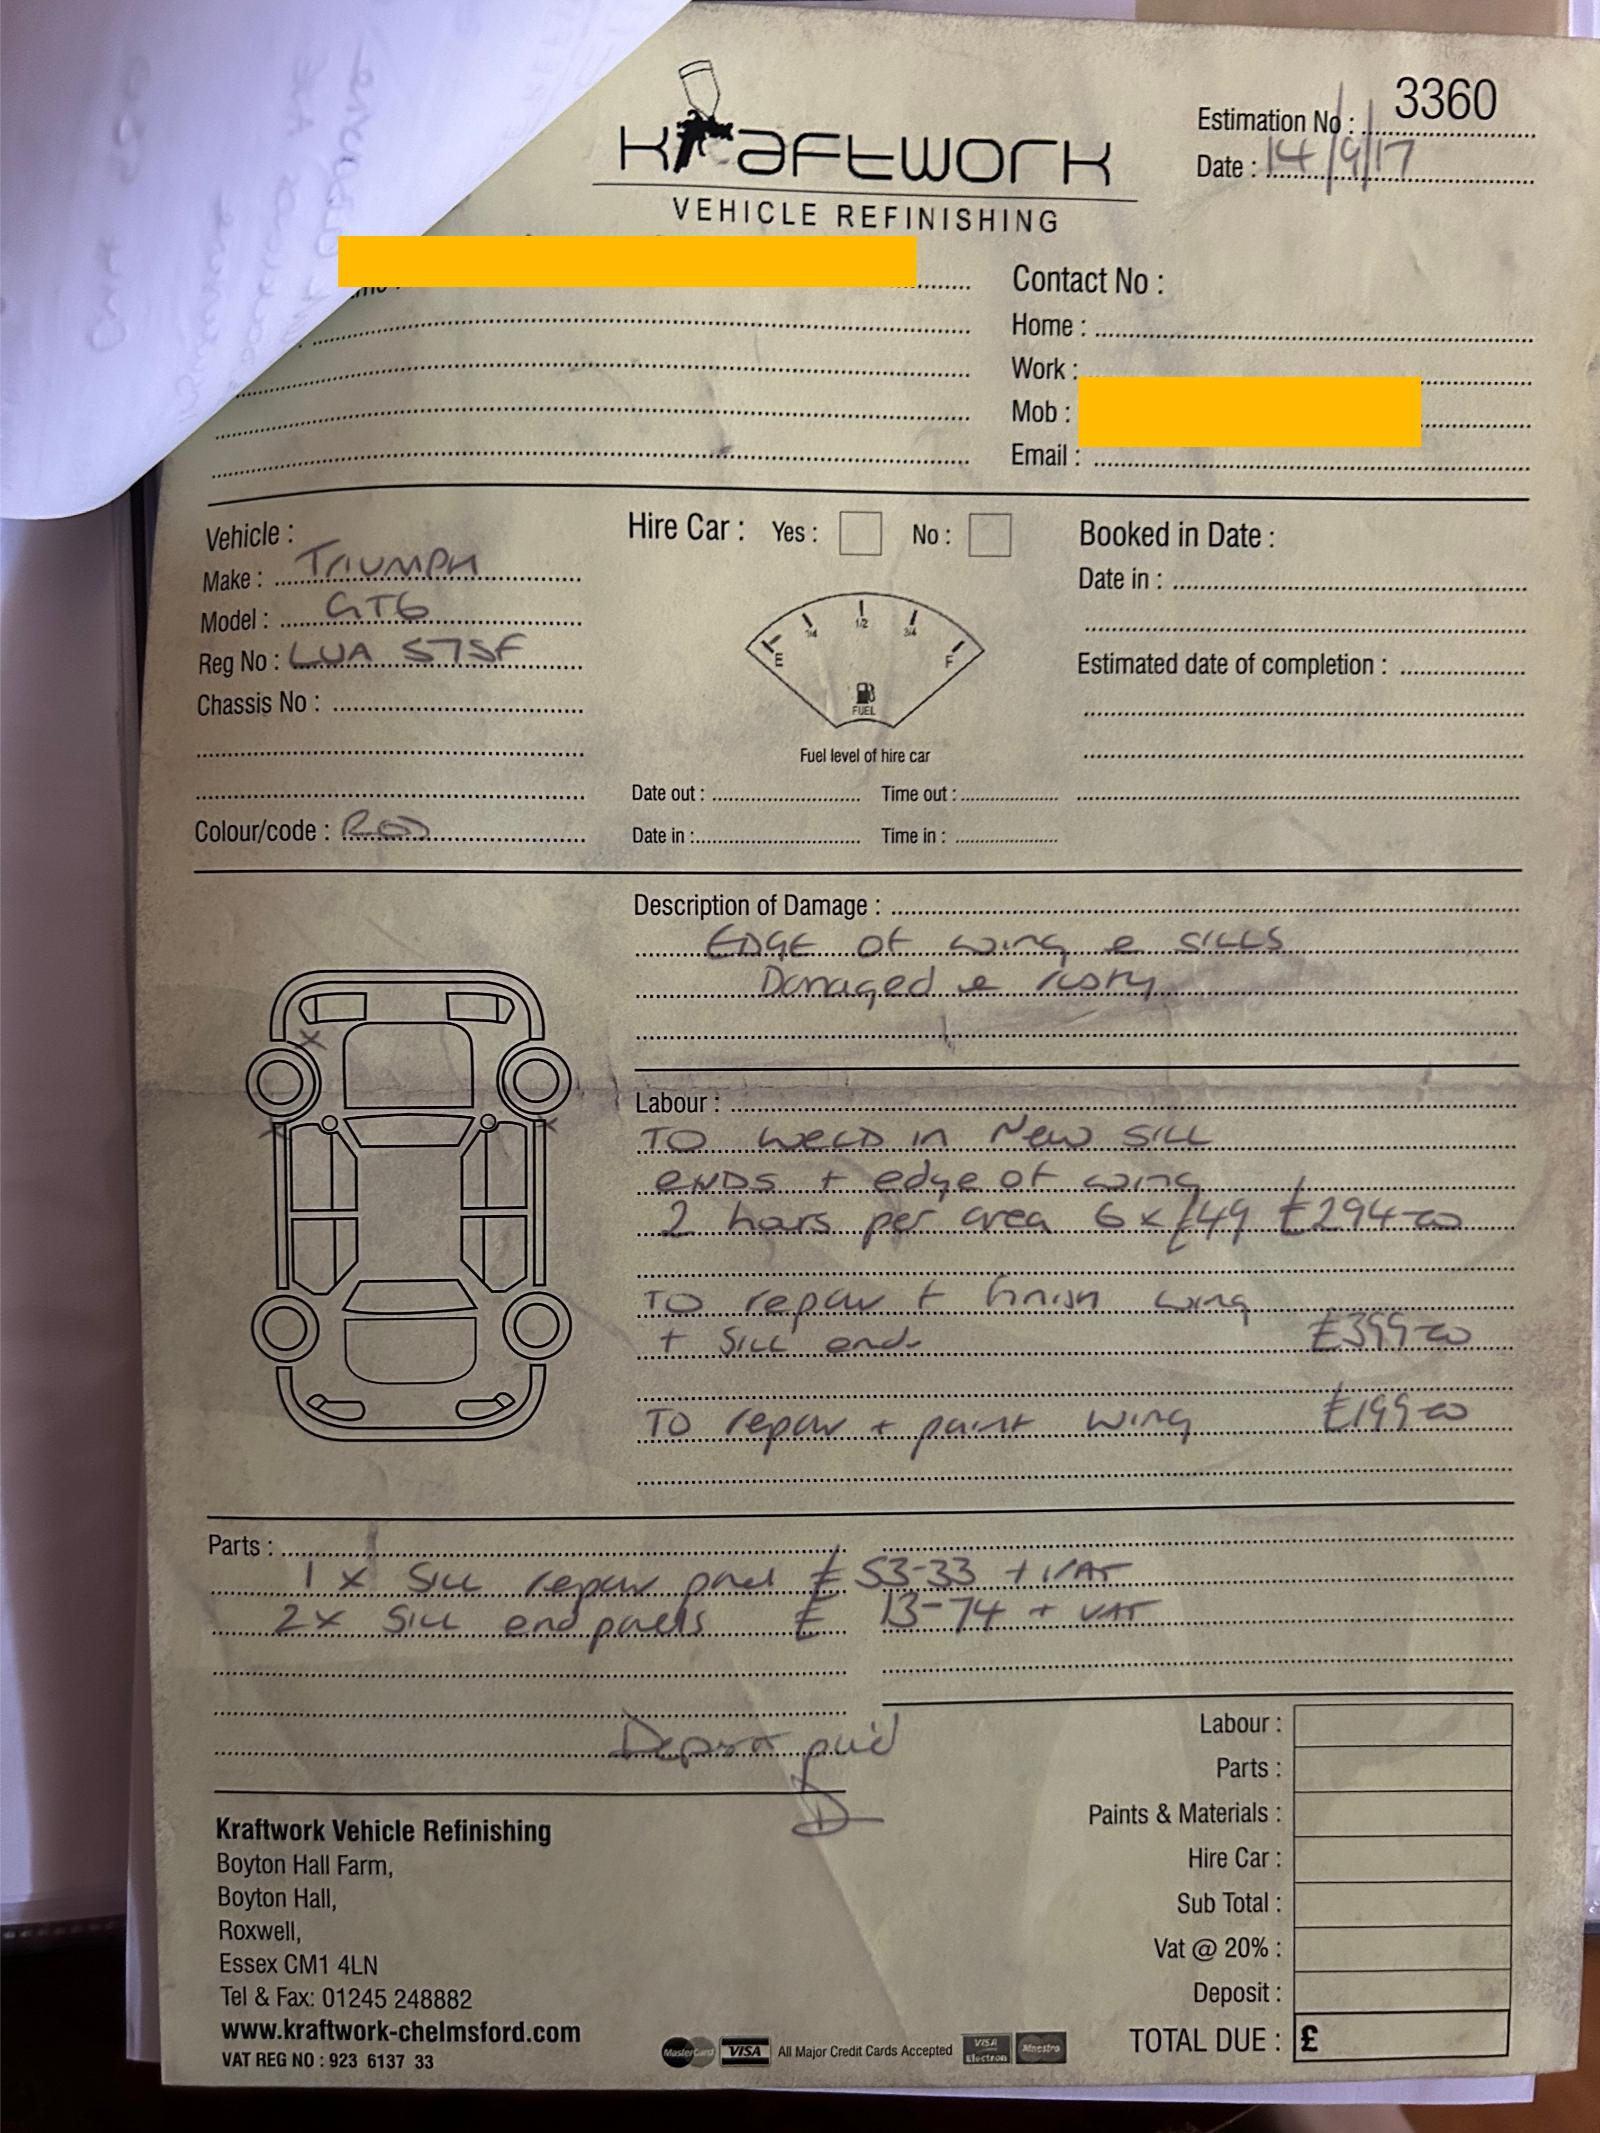 Kraftwork
VEHICLE REFINISHING
Estimation No : 3360
Date : 14/9/17
Contact No :
Home :
Work :
Mob :
Email :
Vehicle :
Make : TRIUMPH
Model : GT6
Reg No : LUA 575F
Chassis No :
Colour/code : RED
Hire Car : Yes : No :
E 1/4 1/2 3/4 F
FUEL
Fuel level of hire car
Date out : Time out :
Date in : Time in :
Booked in Date :
Date in :
Estimated date of completion :
Description of Damage :
EDGE of wing & SILLS
Damaged & rusty
Labour :
TO WELD in New SILL
ENDS + edge of wing
2 hours per area 6 x £49 £294-00
TO repair + finish wing
+ SILL ends £399-00
TO repair + paint wing £199-00
Parts :
1 x SILL repair panel £ 53-33 + VAT
2x SILL end panels £ 13-74 + VAT
Deposit paid
Labour :
Parts :
Paints & Materials :
Hire Car :
Sub Total :
Vat @ 20% :
Deposit :
TOTAL DUE : £
Kraftwork Vehicle Refinishing
Boyton Hall Farm,
Boyton Hall,
Roxwell,
Essex CM1 4LN
Tel & Fax: 01245 248882
www.kraftwork-chelmsford.com
VAT REG NO : 923 6137 33
MasterCard VISA All Major Credit Cards Accepted VISA Electron Maestro